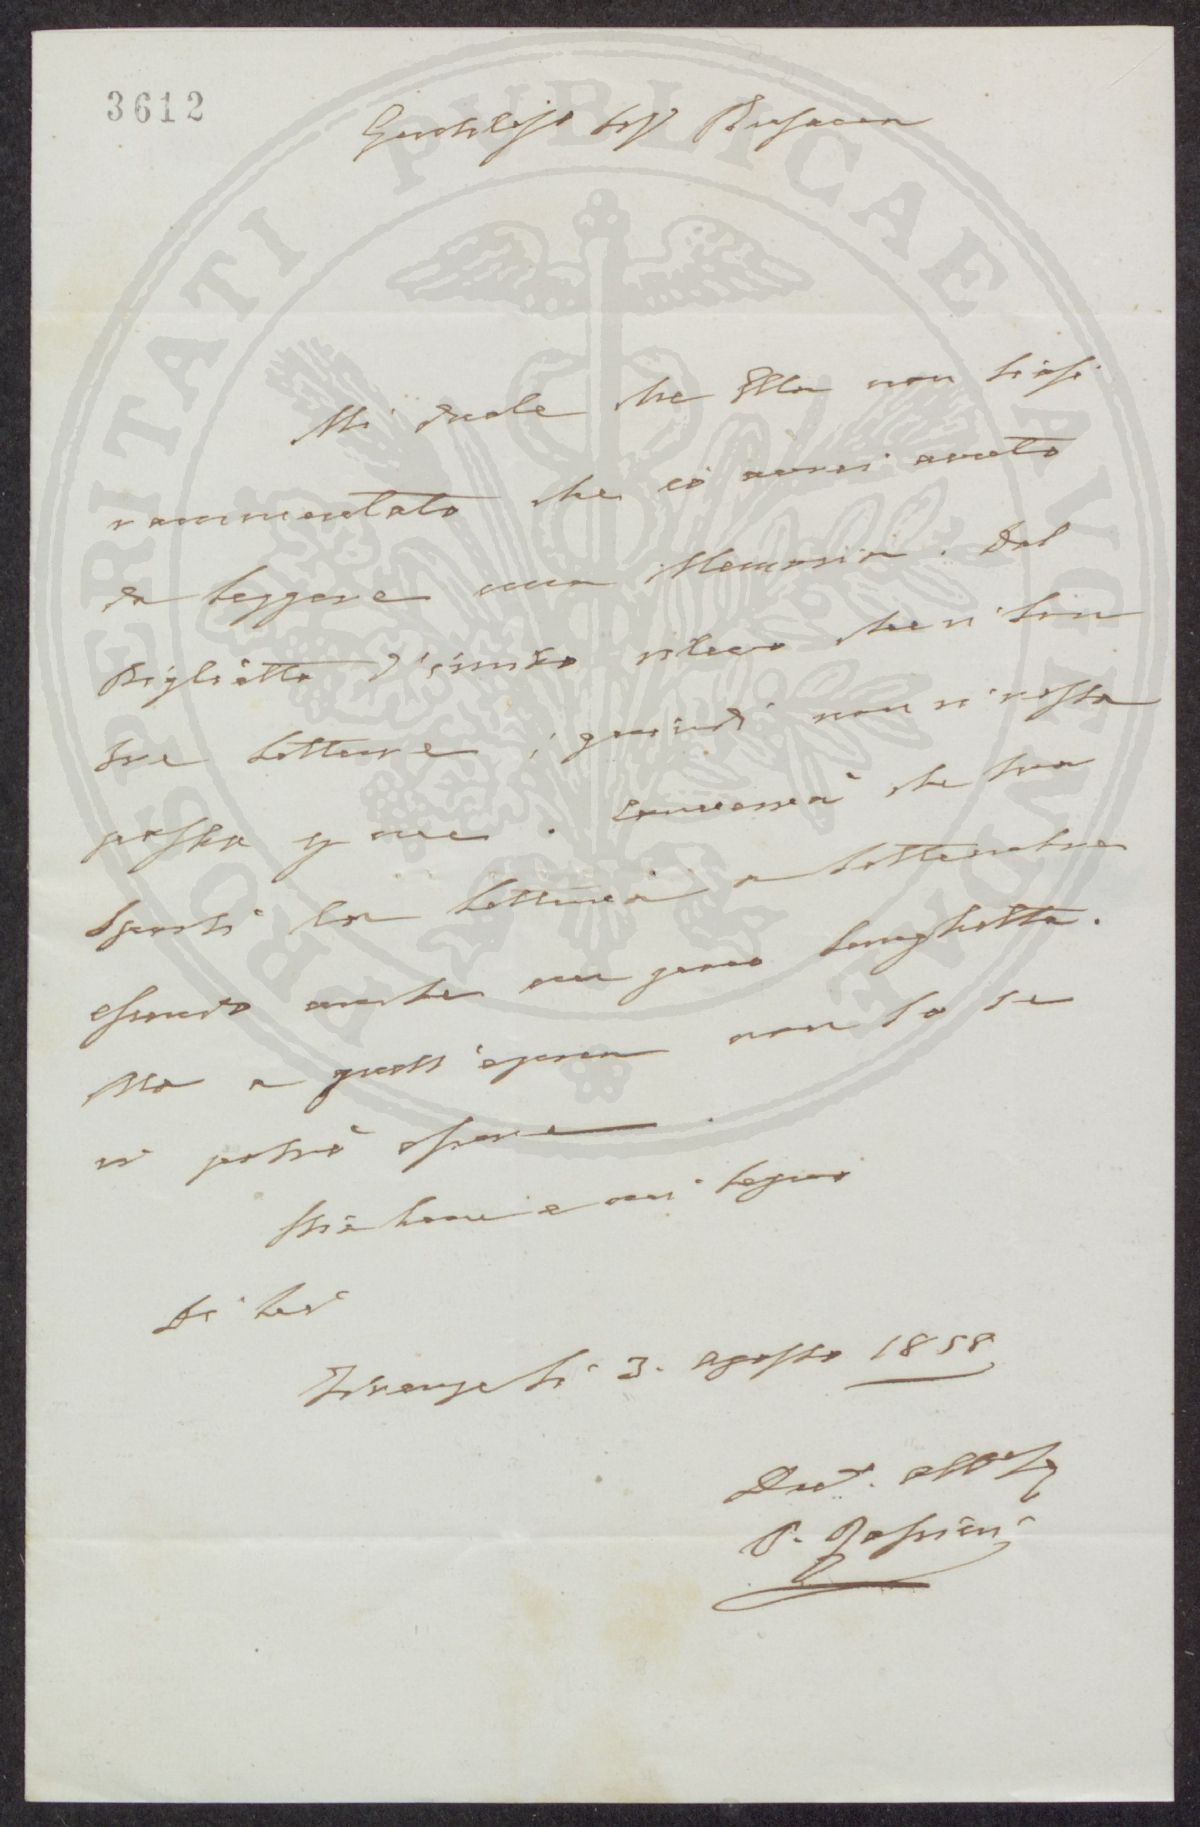 3612
PROSPERITATI PUBLICAE AUGENDAE
Gentiliss. Sigr Busacca
Mi duole che Ella non siasi
rammentato che io avrei avuto
da leggere una Memoria. Dal
Biglietto d'invito rilevo che vi son
tre letture; quindi non vi resta
posto p me. Converrà che tra
sporti la lettura a Settembre
essendo anche un poco lunghetta.
Ma a quell'epoca non so se
vi potrò essere.
Stia bene e mi segno
Di Lei
Firenze li 3. agosto 1858
Dev. obb
P.